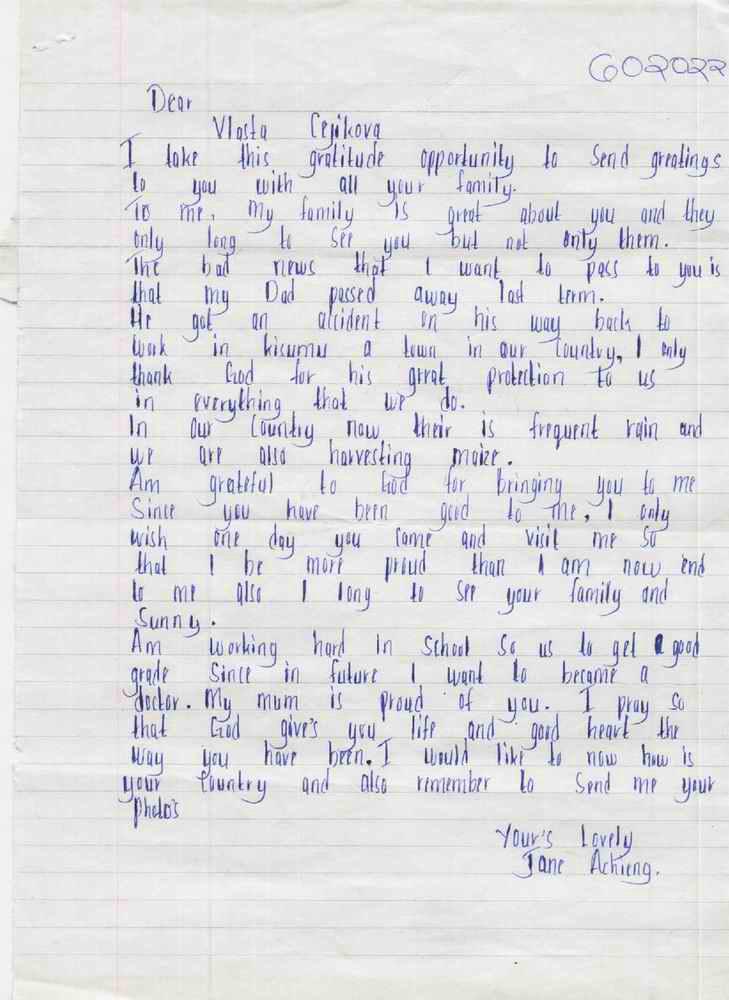 602022
Dear
Vlasta Cejikova
I take this gratitude opportunity to send greatings
to you with all your family.
To me, My family is great about you and they
only long to see you but not only them.
The bad news that I want to pass to you is
that my Dad passed away last term.
He got an accident on his way back to
work in kisumu a town in our country, I only
thank God for his great protection to us
in everything that we do.
In our country now their is frequent rain and
we are also harvesting maize.
Am grateful to God for bringing you to me
Since you have been good to me, I only
wish one day you came and visit me so
that I be more proud than I am now end
to me also I long to see your family and
Sunny.
Am working hard in school so us to get a good
grade since in future I want to became a
doctor. My mum is proud of you. I pray so
that God give's you life and good heart the
way you have been. I would like to now how is
your country and also remember to send me your
photo's
Your's Lovely
Jane Achieng.